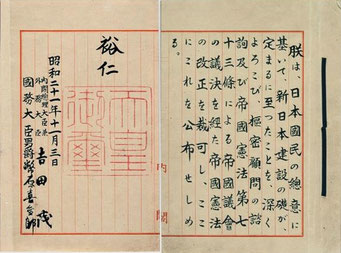 朕は、日本國民の總意に
基いて、新日本建設の礎が、
定まるに至つたことを、深く
よろこび、樞密顧問の諮
詢及び帝國憲法第七
十三條による帝國議會
の議決を経た帝國憲法
の改正を裁可し、ここ
にこれを公布せしめ
る。
裕仁
天皇
御璽
昭和二十一年十一月三日
內閣總理大臣兼
外務大臣
吉田茂
國務大臣 男爵 幣原喜重郎
內閣